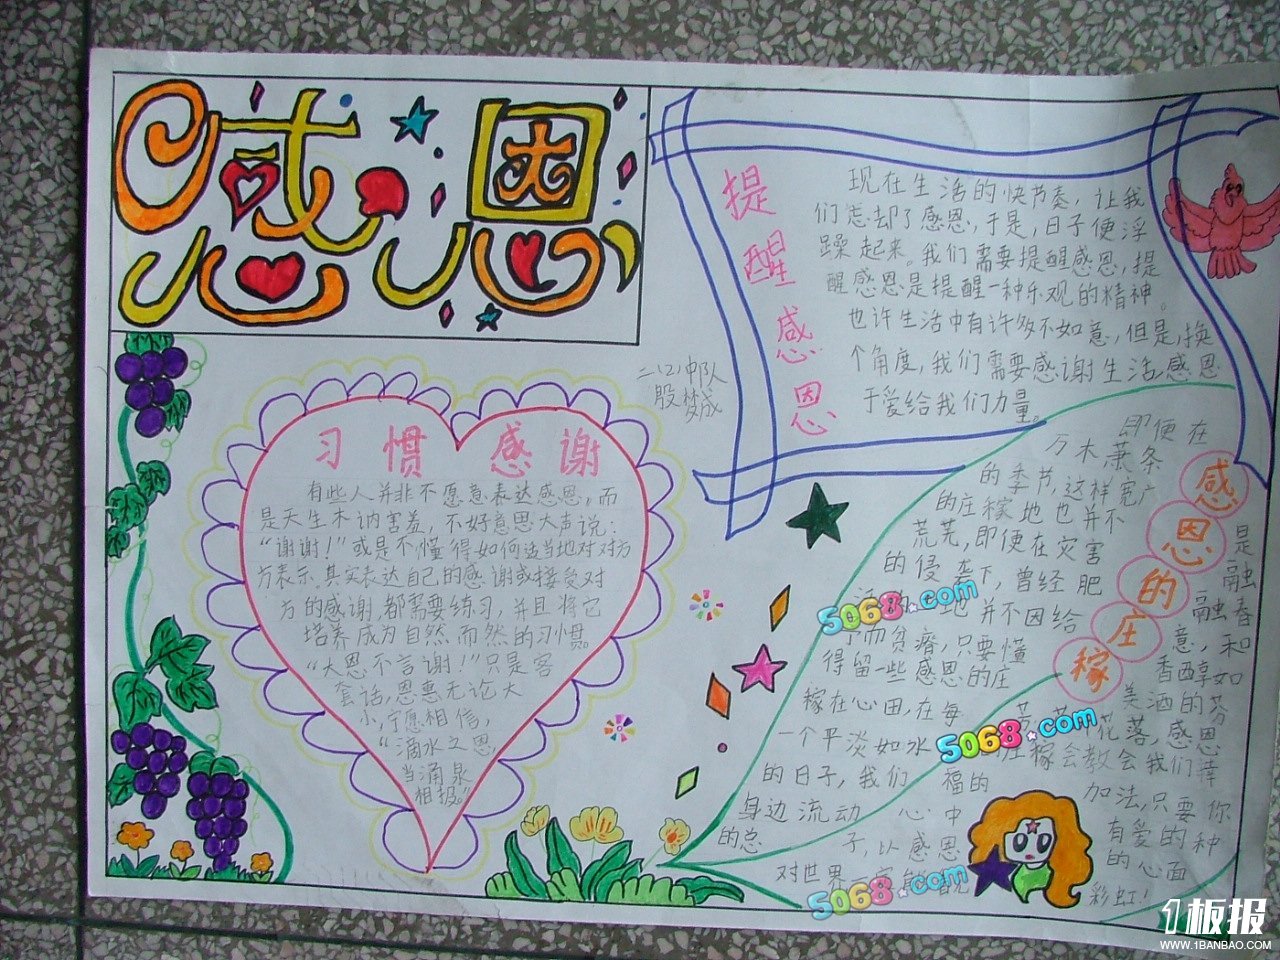 感恩
提醒感恩
现在生活的快节奏，让我
们忘却了感恩，于是，日子便浮
躁起来。我们需要提醒感恩，提
醒感恩是提醒一种乐观的精神。
也许生活中有许多不如意，但是，换
个角度，我们需要感谢生活感恩
于爱给我们力量。
二(2)中队
殷梦成
习惯感谢
有些人并非不愿意表达感恩，而
是天生木讷害羞，不好意思大声说：
“谢谢！”或是不懂得如何适当地对对方
方表示，其实表达自己的感谢或接受对
方的感谢，都需要练习，并且将它
培养成为自然而然的习惯。
“大恩不言谢！”只是客
套话，恩惠无论大
小，宁愿相信，
“滴水之恩，
当涌泉
相报。”
感恩的庄稼
即便在
万木萧条
的季节，这样宽广
的庄稼地也并不
荒芜，即便在灾害
的侵袭下，曾经肥
地并不因给
而贫瘠，只要懂
得留一些感恩的庄
稼在心田，在每
一个平淡如水
的日子，我们
身边流动
的总
是
融
融春
意，和
香醇如
美酒的芬
花落，感恩
庄稼会教会我们
福的
加法，只要你
心中
有爱的种
子，以感恩
的心面
对世界一定能
彩虹！
5068.com
5068.com
5068.com
1板报
WWW.1BANBAO.COM